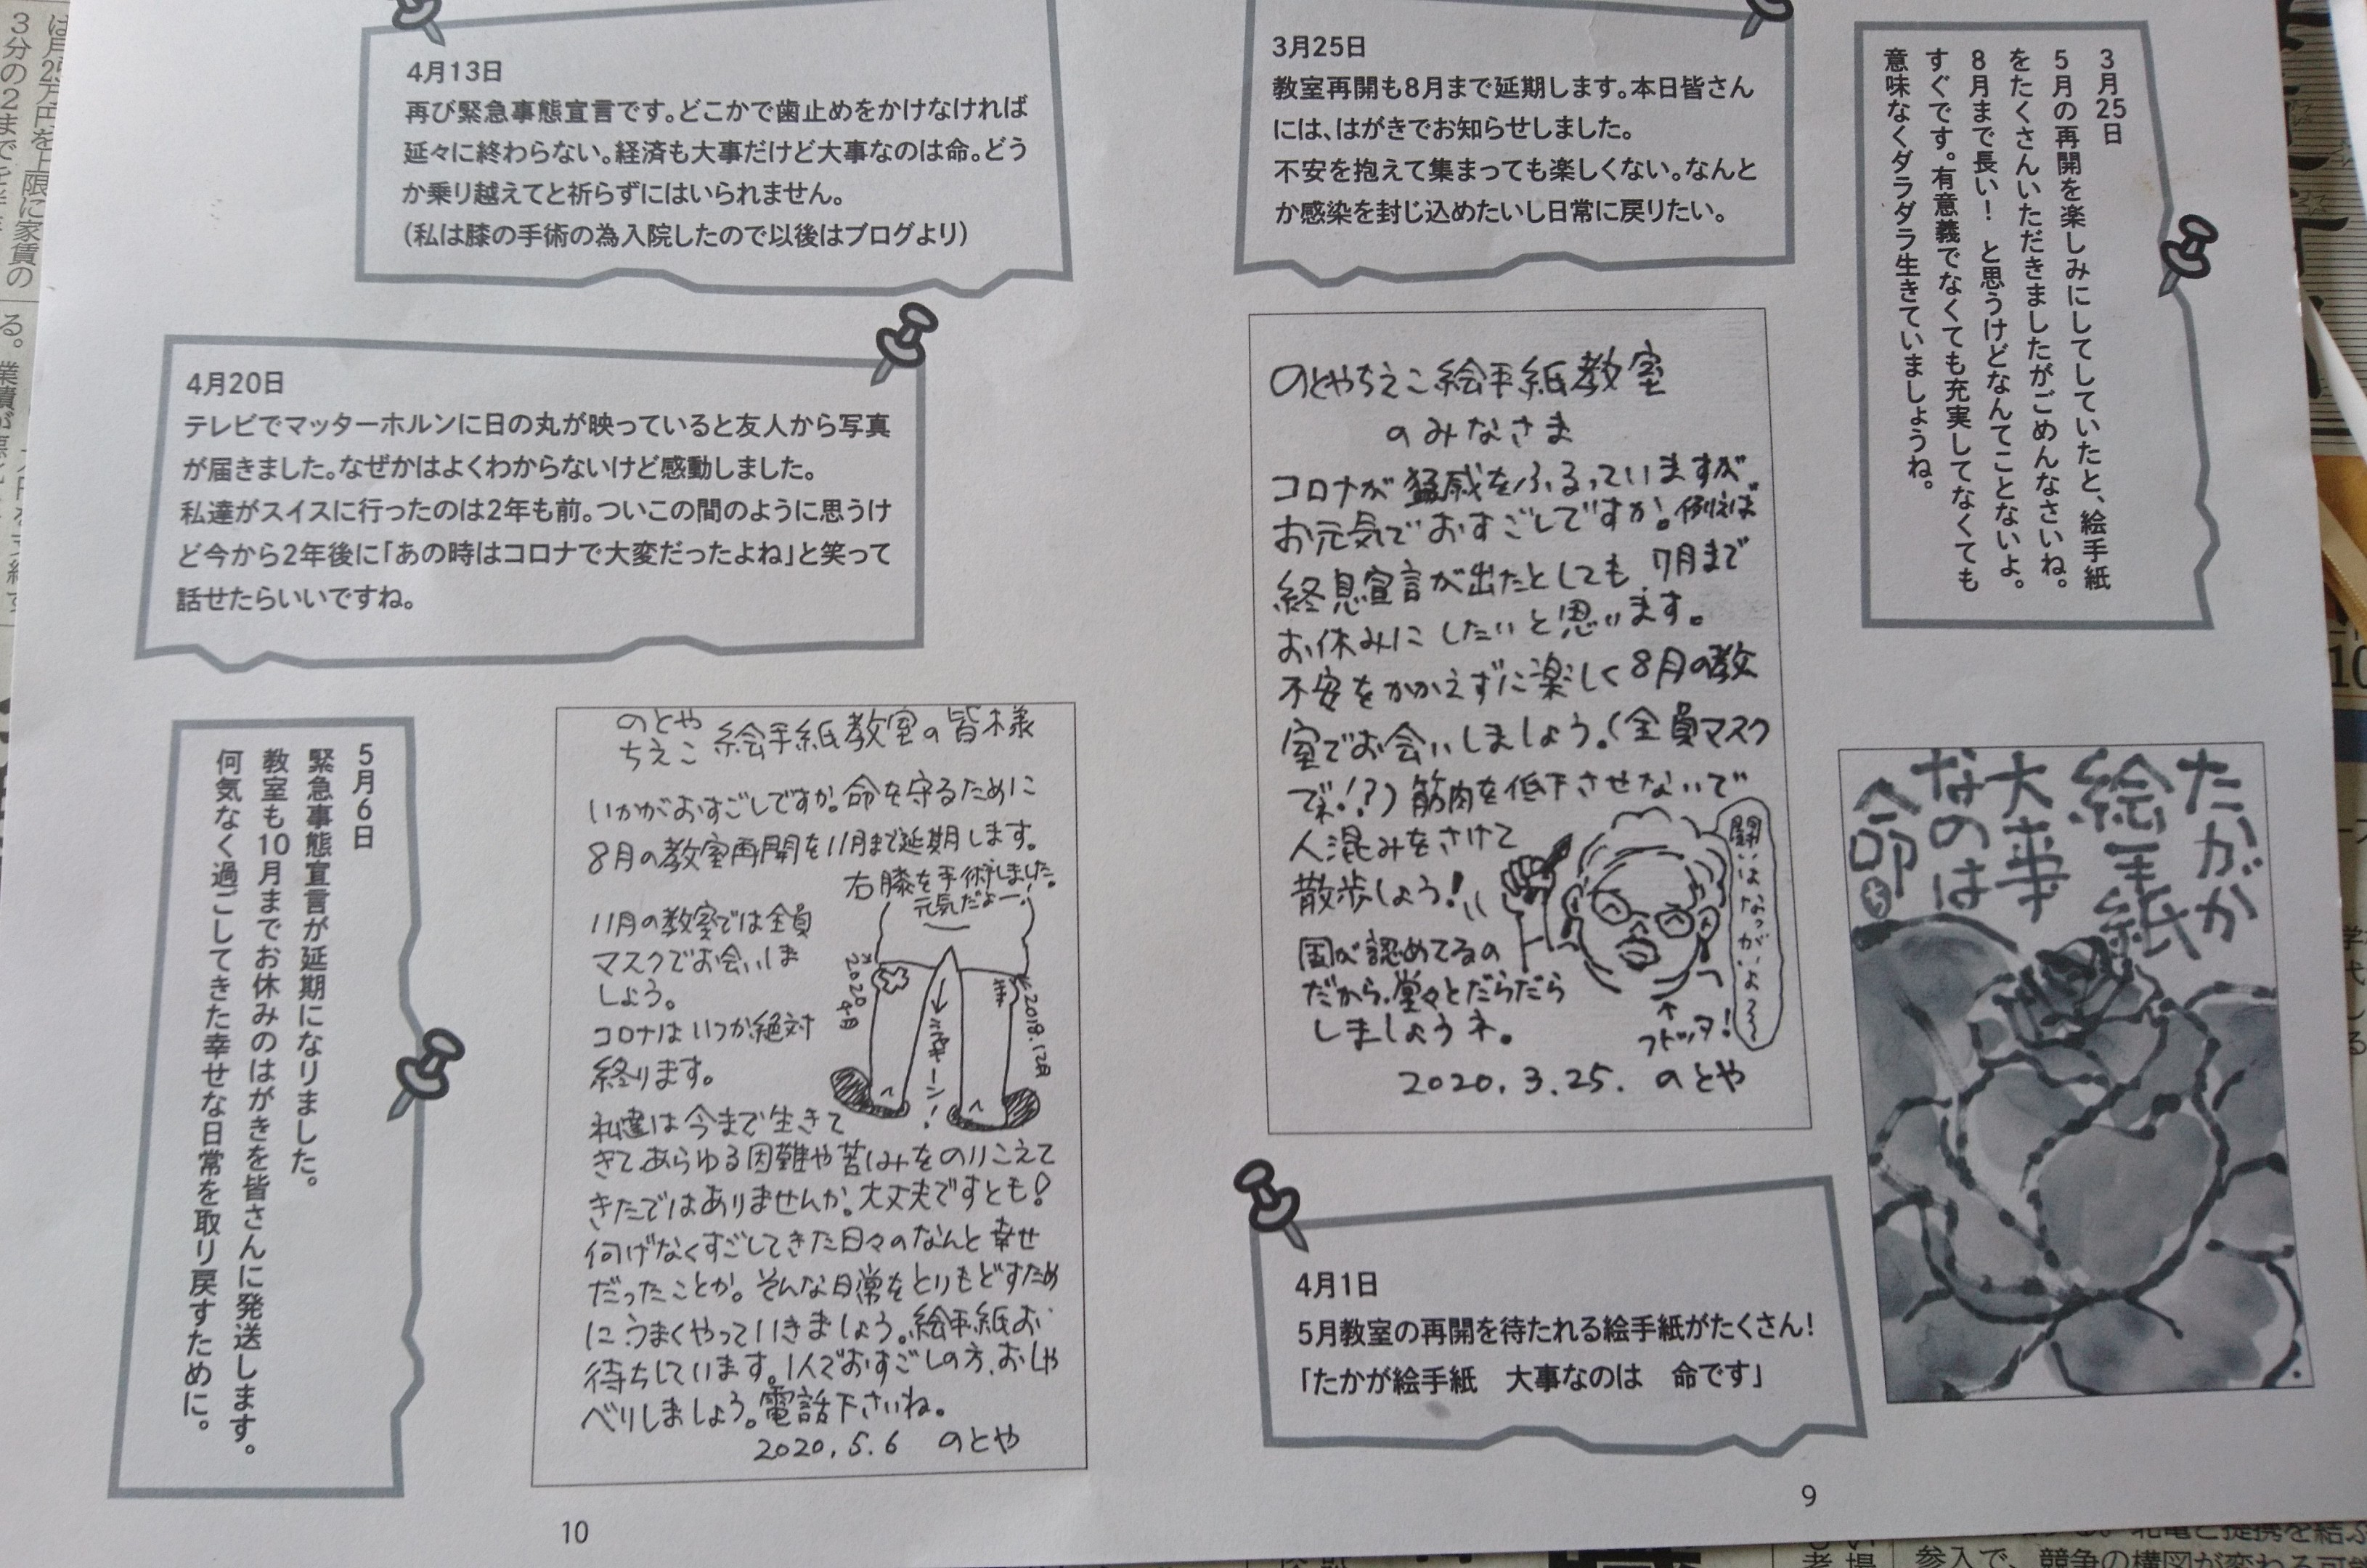 3月25日
5月の再開を楽しみにしてしていたと、絵手紙
をたくさんいただきましたがごめんなさいね。
8月まで長い! と思うけどなんてことないよ。
すぐです。有意義でなくても充実してなくても
意味なくダラダラ生きていましょうね。
たかが
絵手紙
大事
なのは
命
3月25日
教室再開も8月まで延期します。本日皆さん
には、はがきでお知らせしました。
不安を抱えて集まっても楽しくない。なんと
か感染を封じ込めたいし日常に戻りたい。
のとやちえこ絵手紙教室
のみなさま
コロナが猛威をふるっていますが
お元気でおすごしですか。例えば
終息宣言が出たとしても、7月まで
お休みにしたいと思います。
不安をかかえずに楽しく8月の教
室でお会いしましょう。(全員マスク
でネ!?)筋肉を低下させないで
人混みをさけて
散歩しよう!
国が認めてるの
だから、堂々とだらだら
しましょうネ。
闘いはなっがいよ〜〜
フトッタ!
2020.3.25. のとや
4月1日
5月教室の再開を待たれる絵手紙がたくさん!
「たかが絵手紙 大事なのは 命です」
9
4月13日
再び緊急事態宣言です。どこかで歯止めをかけなければ
延々に終わらない。経済も大事だけど大事なのは命。どう
か乗り越えてと祈らずにはいられません。
(私は膝の手術の為入院したので以後はブログより)
4月20日
テレビでマッターホルンに日の丸が映っていると友人から写真
が届きました。なぜかはよくわからないけど感動しました。
私達がスイスに行ったのは2年も前。ついこの間のように思うけ
ど今から2年後に「あの時はコロナで大変だったよね」と笑って
話せたらいいですね。
のとや
ちえこ 絵手紙教室の皆様
いかがおすごしですか。命を守るために
8月の教室再開を11月まで延期します。
右膝を手術しました。
元気だよー!
11月の教室では全員
マスクでお会いしま
しょう。
コロナはいつか絶対
終ります。
2020 4月
2018.12月
私達は今まで生きて
きて、あらゆる困難や苦しみをのりこえて
きたではありませんか。大丈夫ですとも!
何げなくすごしてきた日々のなんと幸せ
だったことか。そんな日常をとりもどすため
に、うまくやっていきましょう。絵手紙お
待ちしています。1人でおすごしの方、おしゃ
べりしましょう。電話下さいね。
2020.5.6 のとや
5月6日
緊急事態宣言が延期になりました。
教室も10月までお休みのはがきを皆さんに発送します。
何気なく過ごしてきた幸せな日常を取り戻すために。
10
は月25万円を上限に家賃の